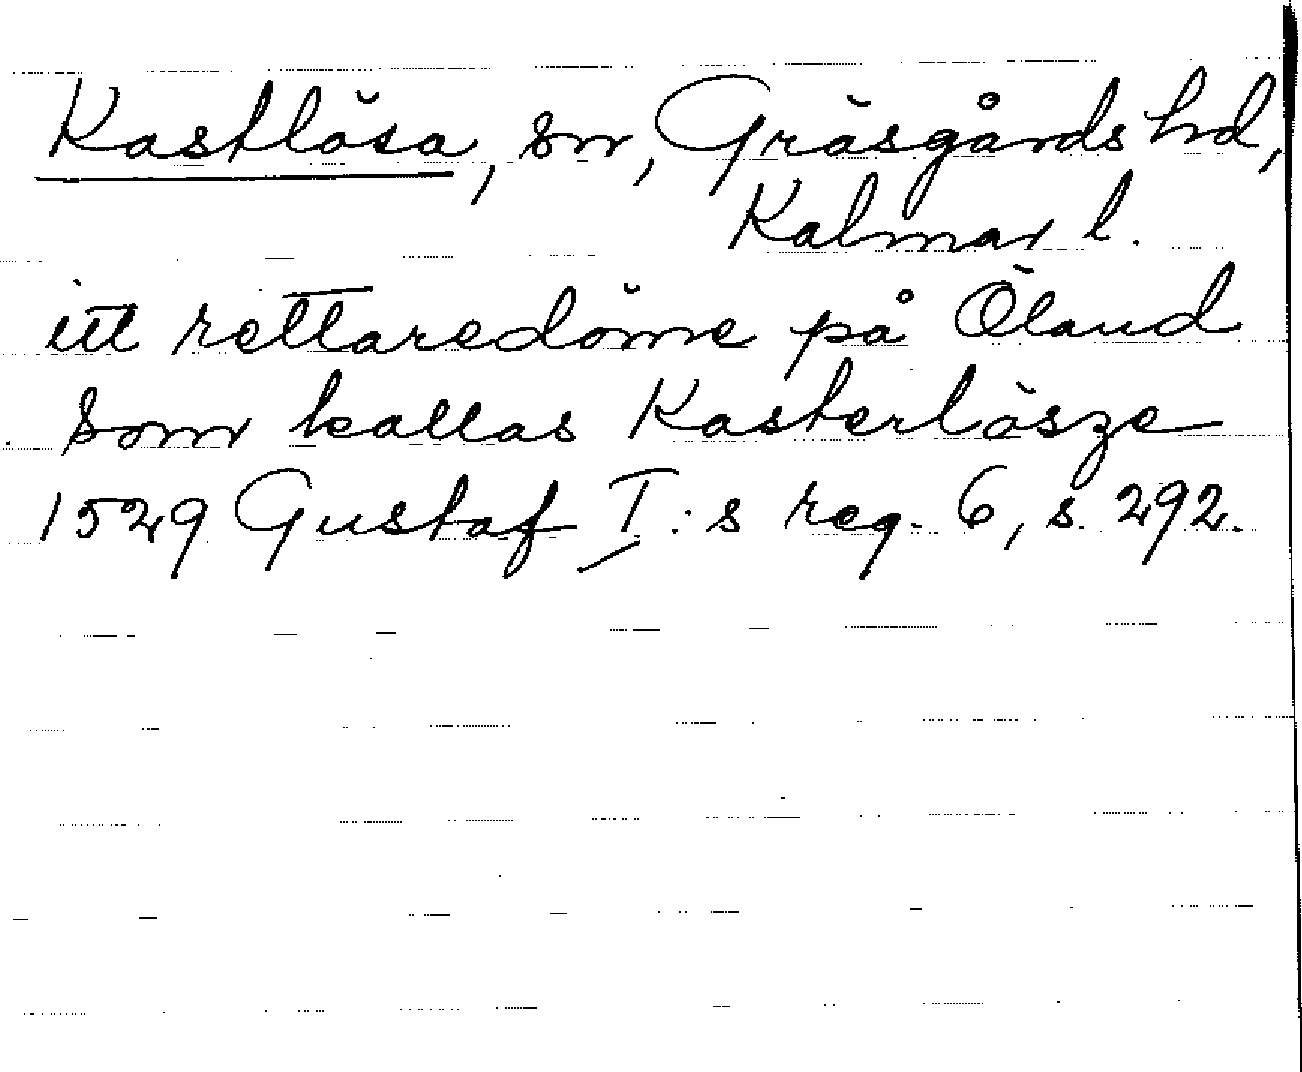 Kastlösa, sn, Gräsgårds hd,
Kalmar l.
itt rettaredöme på Öland
som kallas Kasterlösze
1529 Gustaf I:s reg. 6, s. 292.